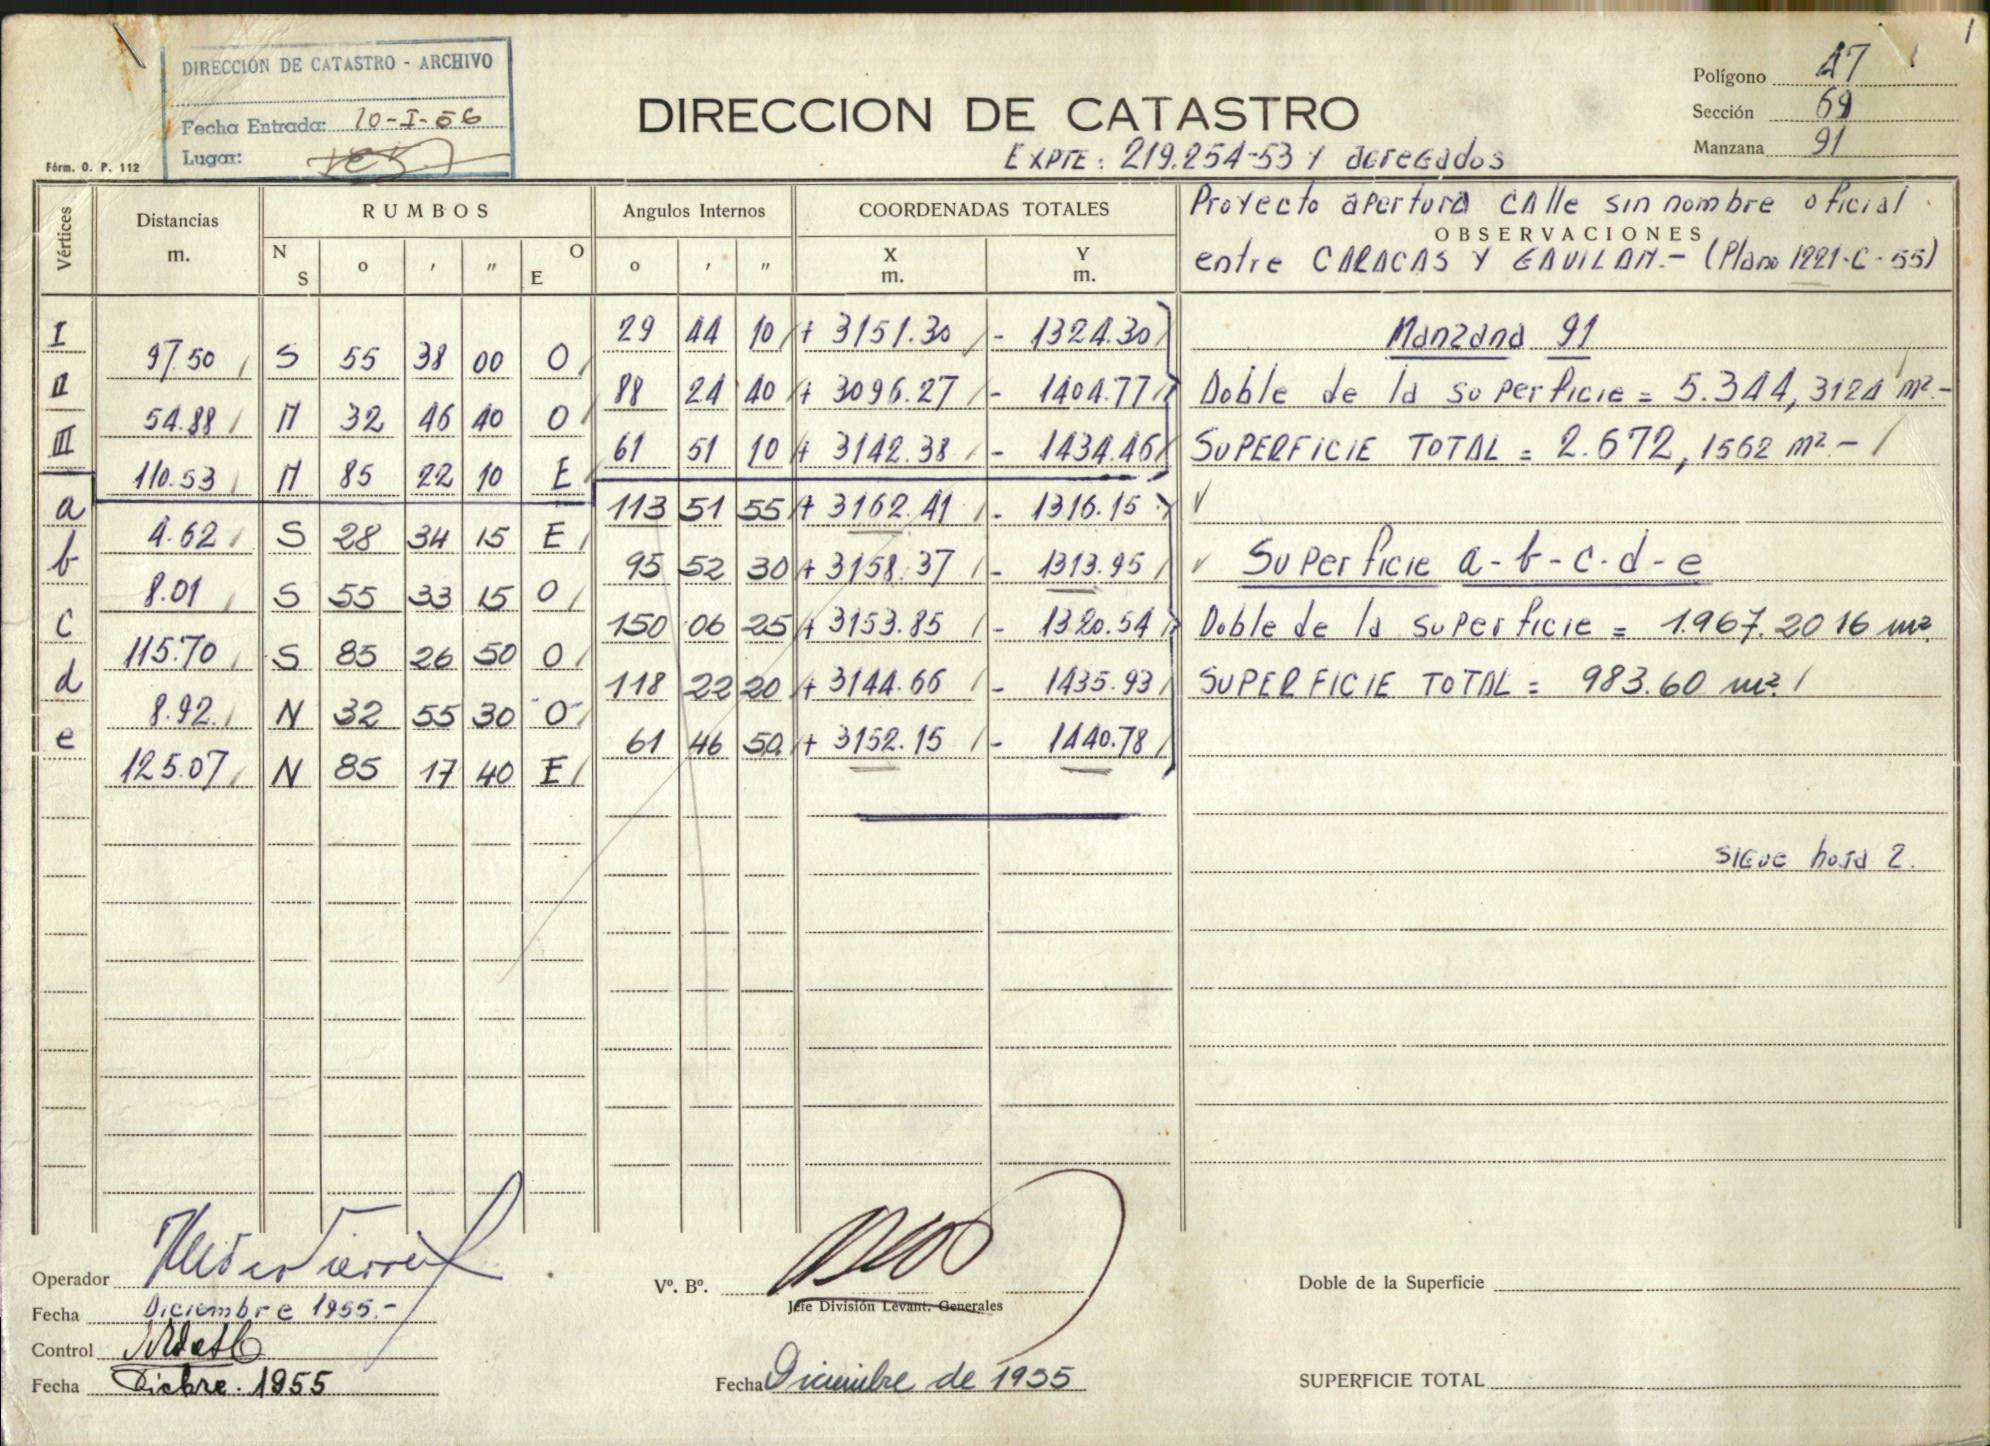 1
DIRECCIÓN DE CATASTRO - ARCHIVO
Fecha Entrada: 10-I-56
Lugar:
Fórm. O. P. 112
DIRECCION DE CATASTRO
EXPTE: 219.254-53 Y agregados
Polígono 47
Sección 69
Manzana 91
Vértices Distancias m. RUMBOS N S ° ' " O E Angulos Internos ° ' " COORDENADAS TOTALES X m. Y m.
Proyecto apertura CAlle sin nombre oficial
OBSERVACIONES
entre CARACAS Y GAVILAN.- (Plano 1221-C-55)
I 29 44 10 + 3151.30 - 1324.30
97.50 S 55 38 00 O
II 88 24 40 + 3096.27 - 1404.77
54.88 N 32 46 40 O
III 61 51 10 + 3142.38 - 1434.46
110.53 N 85 22 10 E
a 113 51 55 + 3162.41 - 1316.15
4.62 S 28 34 15 E
b 95 52 30 + 3158.37 - 1313.95
8.01 S 55 33 15 O
c 150 06 25 + 3153.85 - 1320.54
115.70 S 85 26 50 O
d 118 22 20 + 3144.66 - 1435.93
8.92 N 32 55 30 O
e 61 46 50 + 3152.15 - 1440.78
125.07 N 85 17 40 E
Manzana 91
Doble de la superficie = 5.344,3124 m².-
SUPERFICIE TOTAL = 2.672,1562 m².-
Superficie a-b-c-d-e
Doble de la superficie = 1.967.2016 m².
SUPERFICIE TOTAL = 983.60 m².
sigue hoja 2.
Operador
Fecha Diciembre 1955.-
Control
Fecha Dicbre. 1955
Vº. Bº.
Jefe División Levant. Generales
Fecha Diciembre de 1955
Doble de la Superficie
SUPERFICIE TOTAL